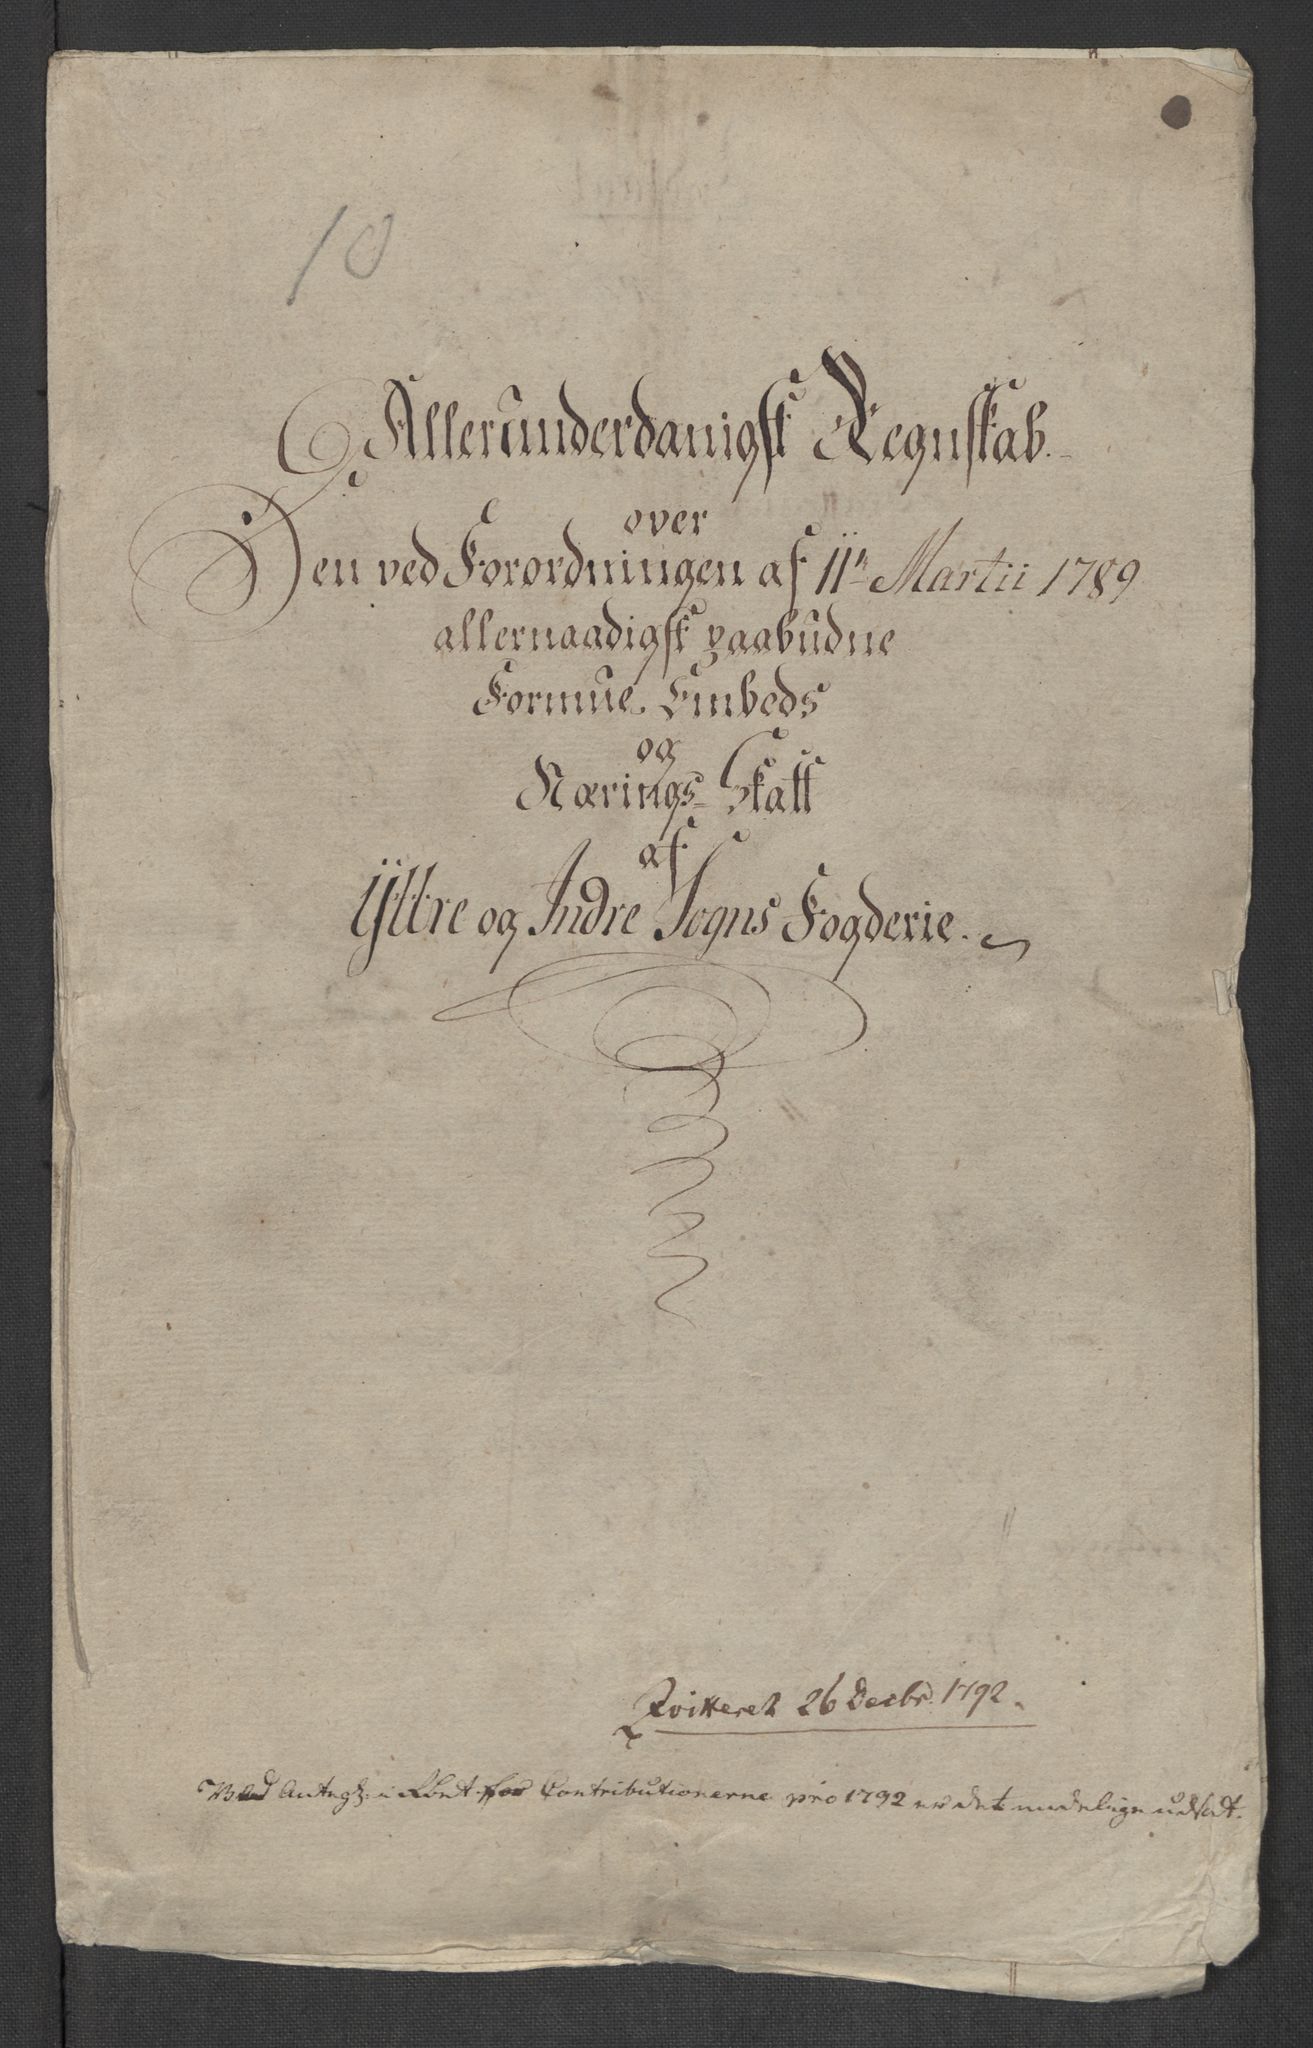 10
Allerunderdanigst Regnskab.
over
Den ved Forordningen af 11te Martii 1789
allernaadigst paabudne
Formue. Embeds
og
Nærings-Skatt
af
Yttre og Indre Sogns Fogderie.
Qvitteret 26 Decbr. 1792.
Ved Antegn: i for Contributionerne pro 1792 er det endelige udsat.